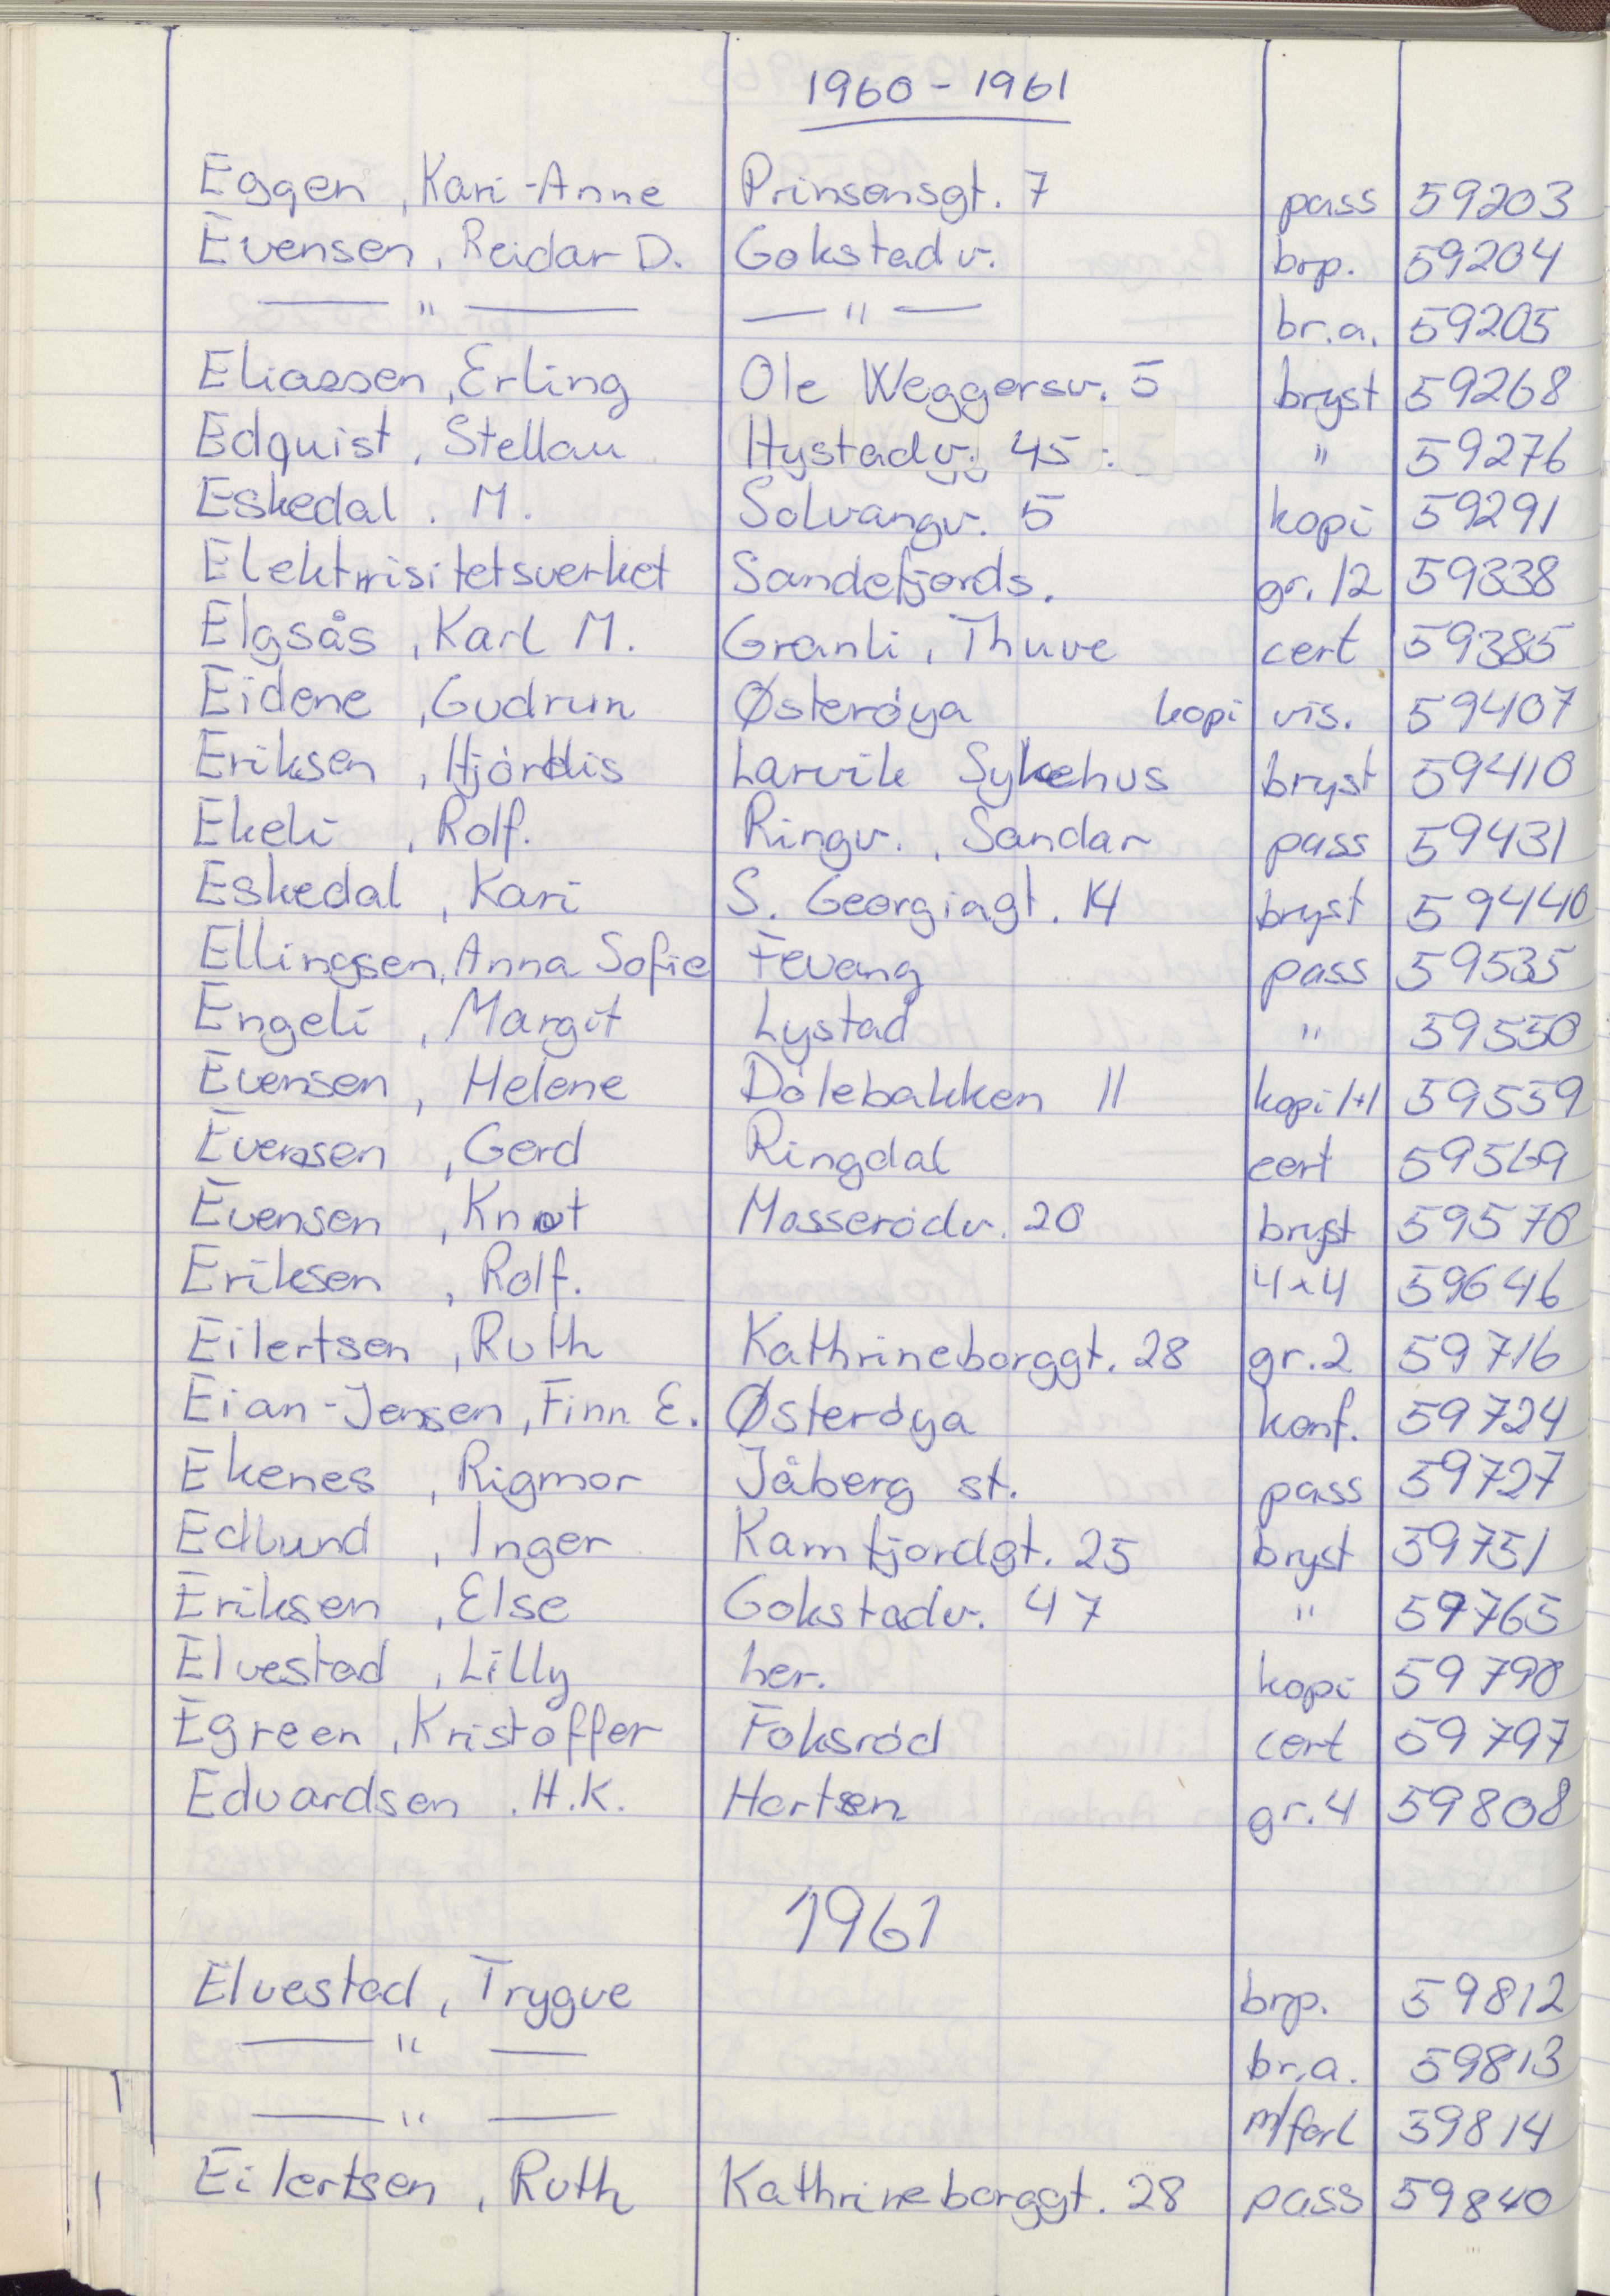 1960 - 1961
Eggen, Kari-Anne Prinsensgt. 7 pass 59203
Evensen, Reidar D. Gokstadv. brp. 59204
— " — — " — br.a. 59205
Eliassen, Erling Ole Weggersv. 5 bryst 59268
Edquist, Stellan Hystadv. 45 " 59276
Eskedal. M. Solvangv. 5 kopi 59291
Elektrisitetsverket Sandefjords. gr. 12 59338
Elgsås, Karl M. Granli, Thuve cert 59385
Eidene, Gudrun Østerøya kopi vis. 59407
Eriksen, Hjördis Larvik Sykehus bryst 59410
Ekeli, Rolf. Ringv., Sandar pass 59431
Eskedal, Kari S. Georgiagt. 14 bryst 59440
Ellingsen, Anna Sofie Fevang pass 59535
Engeli, Margit Lystad " 59550
Evensen, Helene Dölebakken 11 kopi 1+1 59559
Evensen, Gerd Ringdal cert 59569
Evensen, Knut Mosserödv. 20 bryst 59570
Eriksen, Rolf. 4x4 59646
Eilertsen, Ruth Kathrineborggt. 28 gr. 2 59716
Eian-Jensen, Finn E. Østeröya konf. 59724
Ekenes, Rigmor Jåberg st. pass 59727
Edlund, Inger Kamfjordgt. 25 bryst 59751
Eriksen, Else Gokstadv. 47 " 59765
Elvestad, Lilly her. kopi 59790
Egreen, Kristoffer Foksröd cert 59797
Edvardsen. H.K. Hortsen gr. 4 59808
1961
Elvestad, Trygve brp. 59812
— " — br.a. 59813
— " — m/forl 59814
Eilertsen, Ruth Kathrineborggt. 28 pass 59840